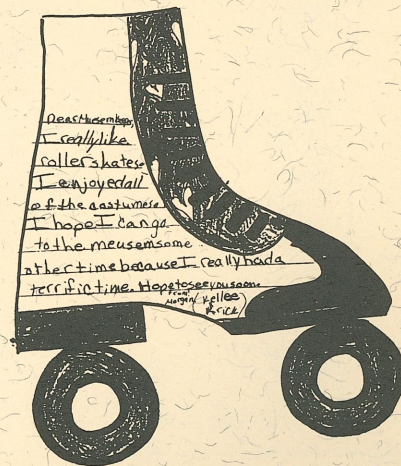 Dear Musem keeper,
I really like
roller skates.
I enjoyed all
of the costumes.
I hope I can go
to the meusem some
other time because I really had a
terrific time. Hope to see you soon.
from
Morgan (Kellee
&